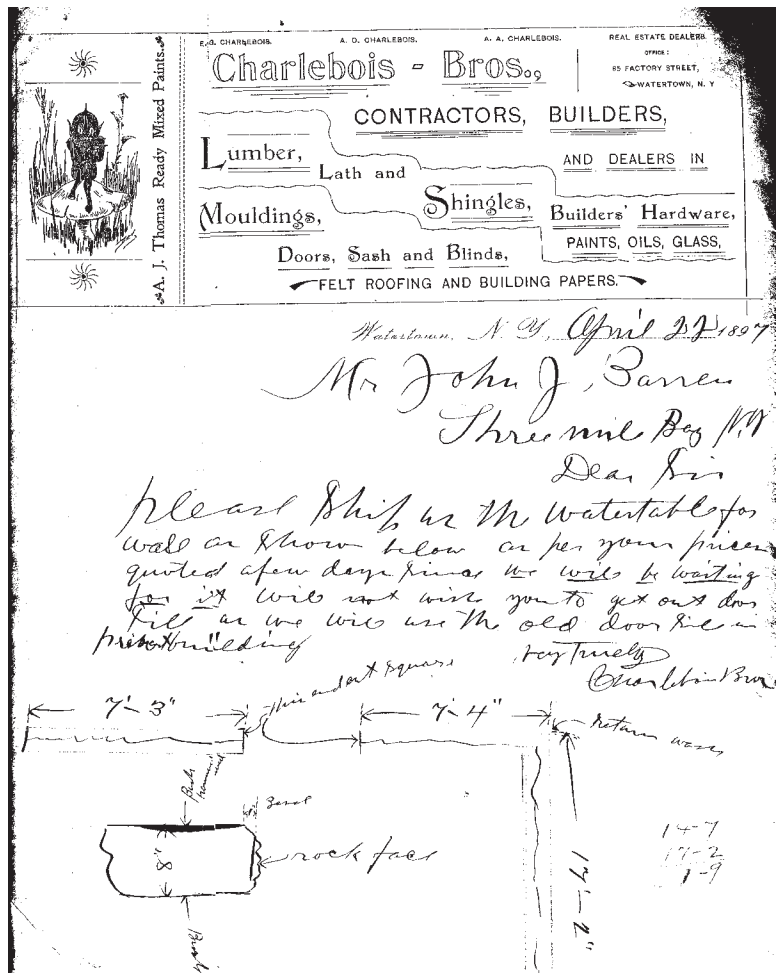 E. G. CHARLEBOIS. A. D. CHARLEBOIS. A. A. CHARLEBOIS.
Charlebois - Bros.
REAL ESTATE DEALERS
OFFICE:
85 FACTORY STREET,
WATERTOWN, N. Y
A. J. Thomas Ready Mixed Paints.
CONTRACTORS, BUILDERS,
AND DEALERS IN
Lumber,
Lath and
Shingles,
Mouldings,
Builders' Hardware,
PAINTS, OILS, GLASS,
Doors, Sash and Blinds,
FELT ROOFING AND BUILDING PAPERS.
Watertown, N. Y., April 22 1897
Mr John J. Barren
Three mile Bay N.Y
Dear Sir
please Ship us the watertable for
wall as Shown below as per your prices
quoted a few days Since we will be waiting
for it will not wish you to get out door
Sill as we will use the old door Sill in
present building
very Truely
Charlebois Bros
7'-3"
this end cut Square
7'-4"
return
8"
rock face
17'-2"
14-7
17-2
1-9